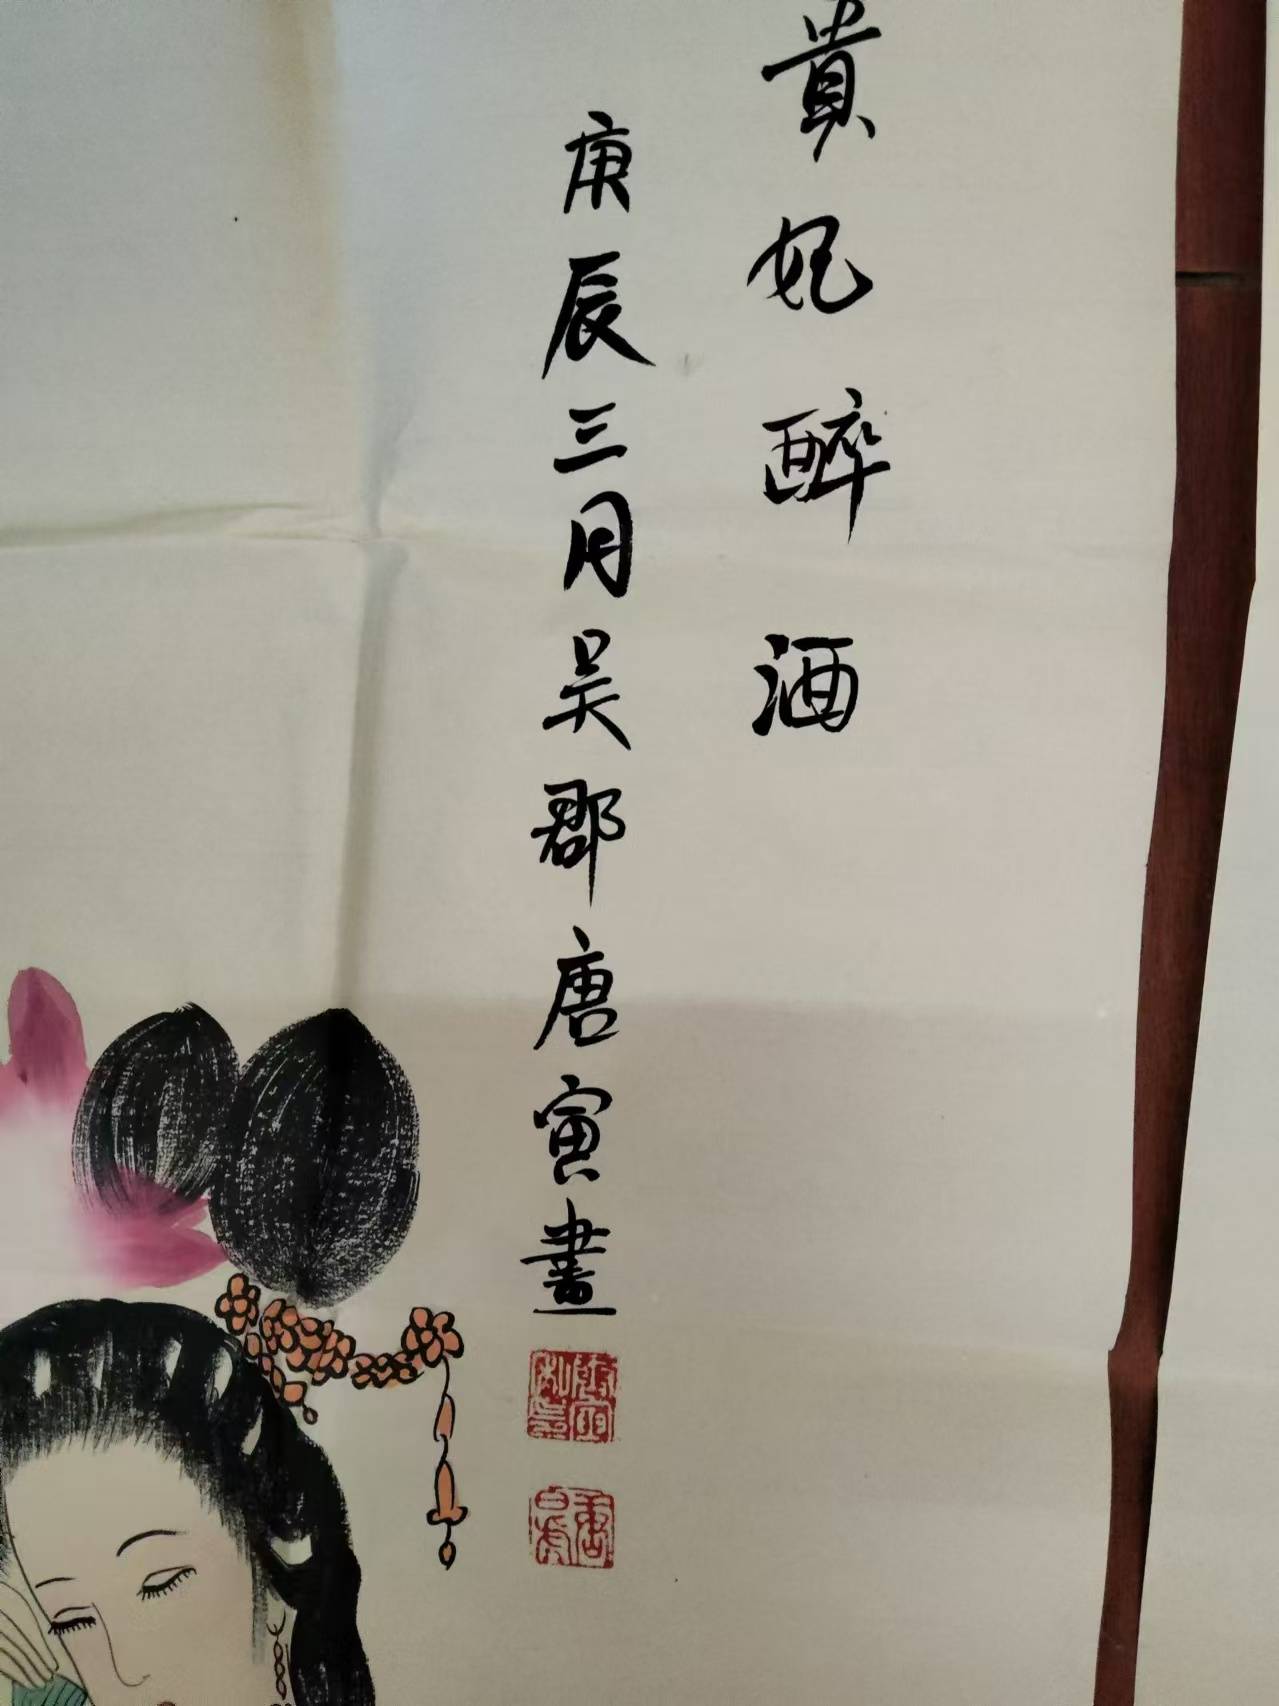 貴妃醉酒
庚辰三月吴郡唐寅畫